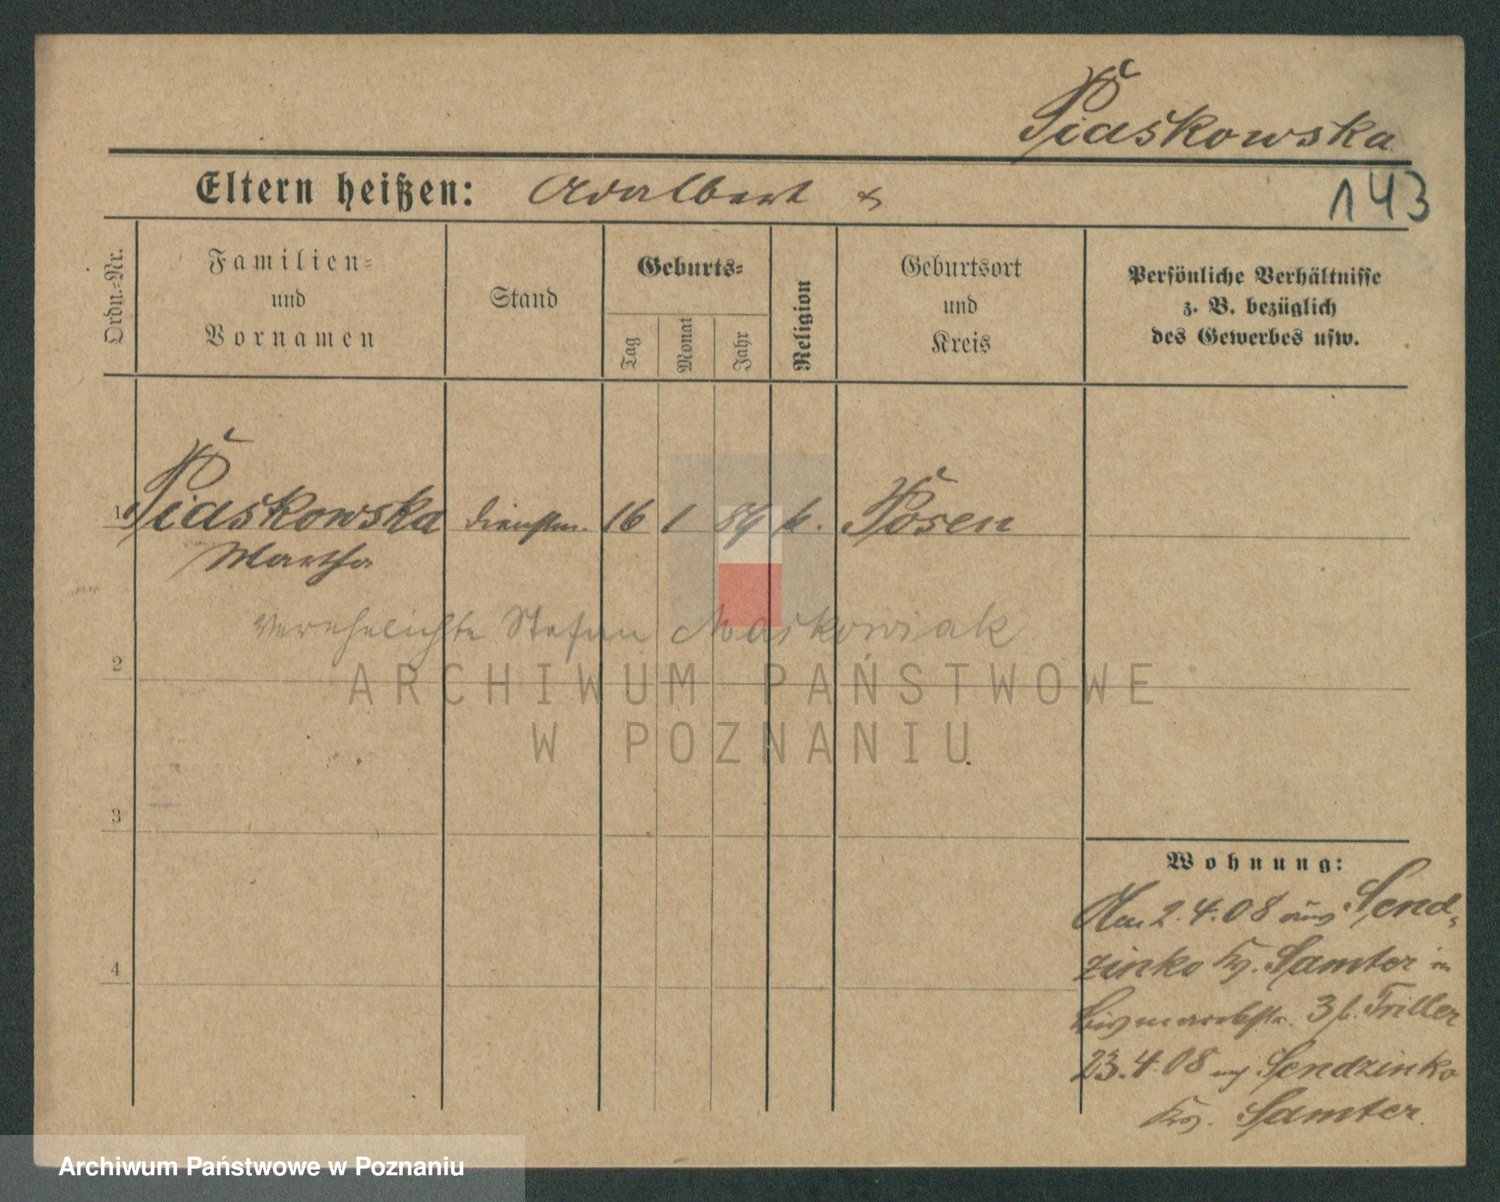 Piaskowska
Eltern heißen: Adalbert
143
Ordn.-Nr.
Familien-
und
Vornamen
Stand
Geburts-
Tag
Monat
Jahr
Religion
Geburtsort
und
Kreis
Persönliche Verhältnisse
z. B. bezüglich
des Gewerbes usw.
1 Piaskowska Dienstm. 16 1 89 k. Posen
Martha
verehelichte Stefan Maśkowiak
2
ARCHIWUM PAŃSTWOWE
W POZNANIU
3
Wohnung:
Am 2.4.08 aus Send-
zinko Kr. Samter in
Bismarckstr. 3 b. Triller
23.4.08 Sendzinko
Kr. Samter.
4
Archiwum Państwowe w Poznaniu